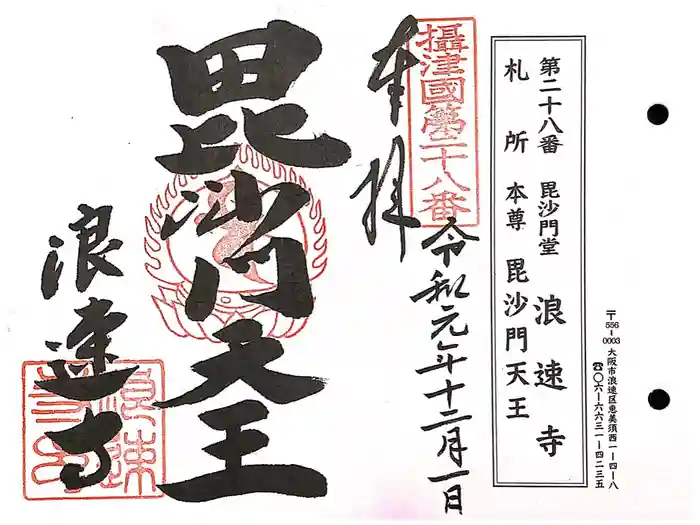 〒556-0003 大阪市浪速区恵美須西一-四-八
☎〇六-六六三一-四二三五
第二十八番 毘沙門堂 浪速寺
札所 本尊 毘沙門天王
攝津國第二十八番
奉拝
令和元年十二月一日
毘沙門天王
浪速寺